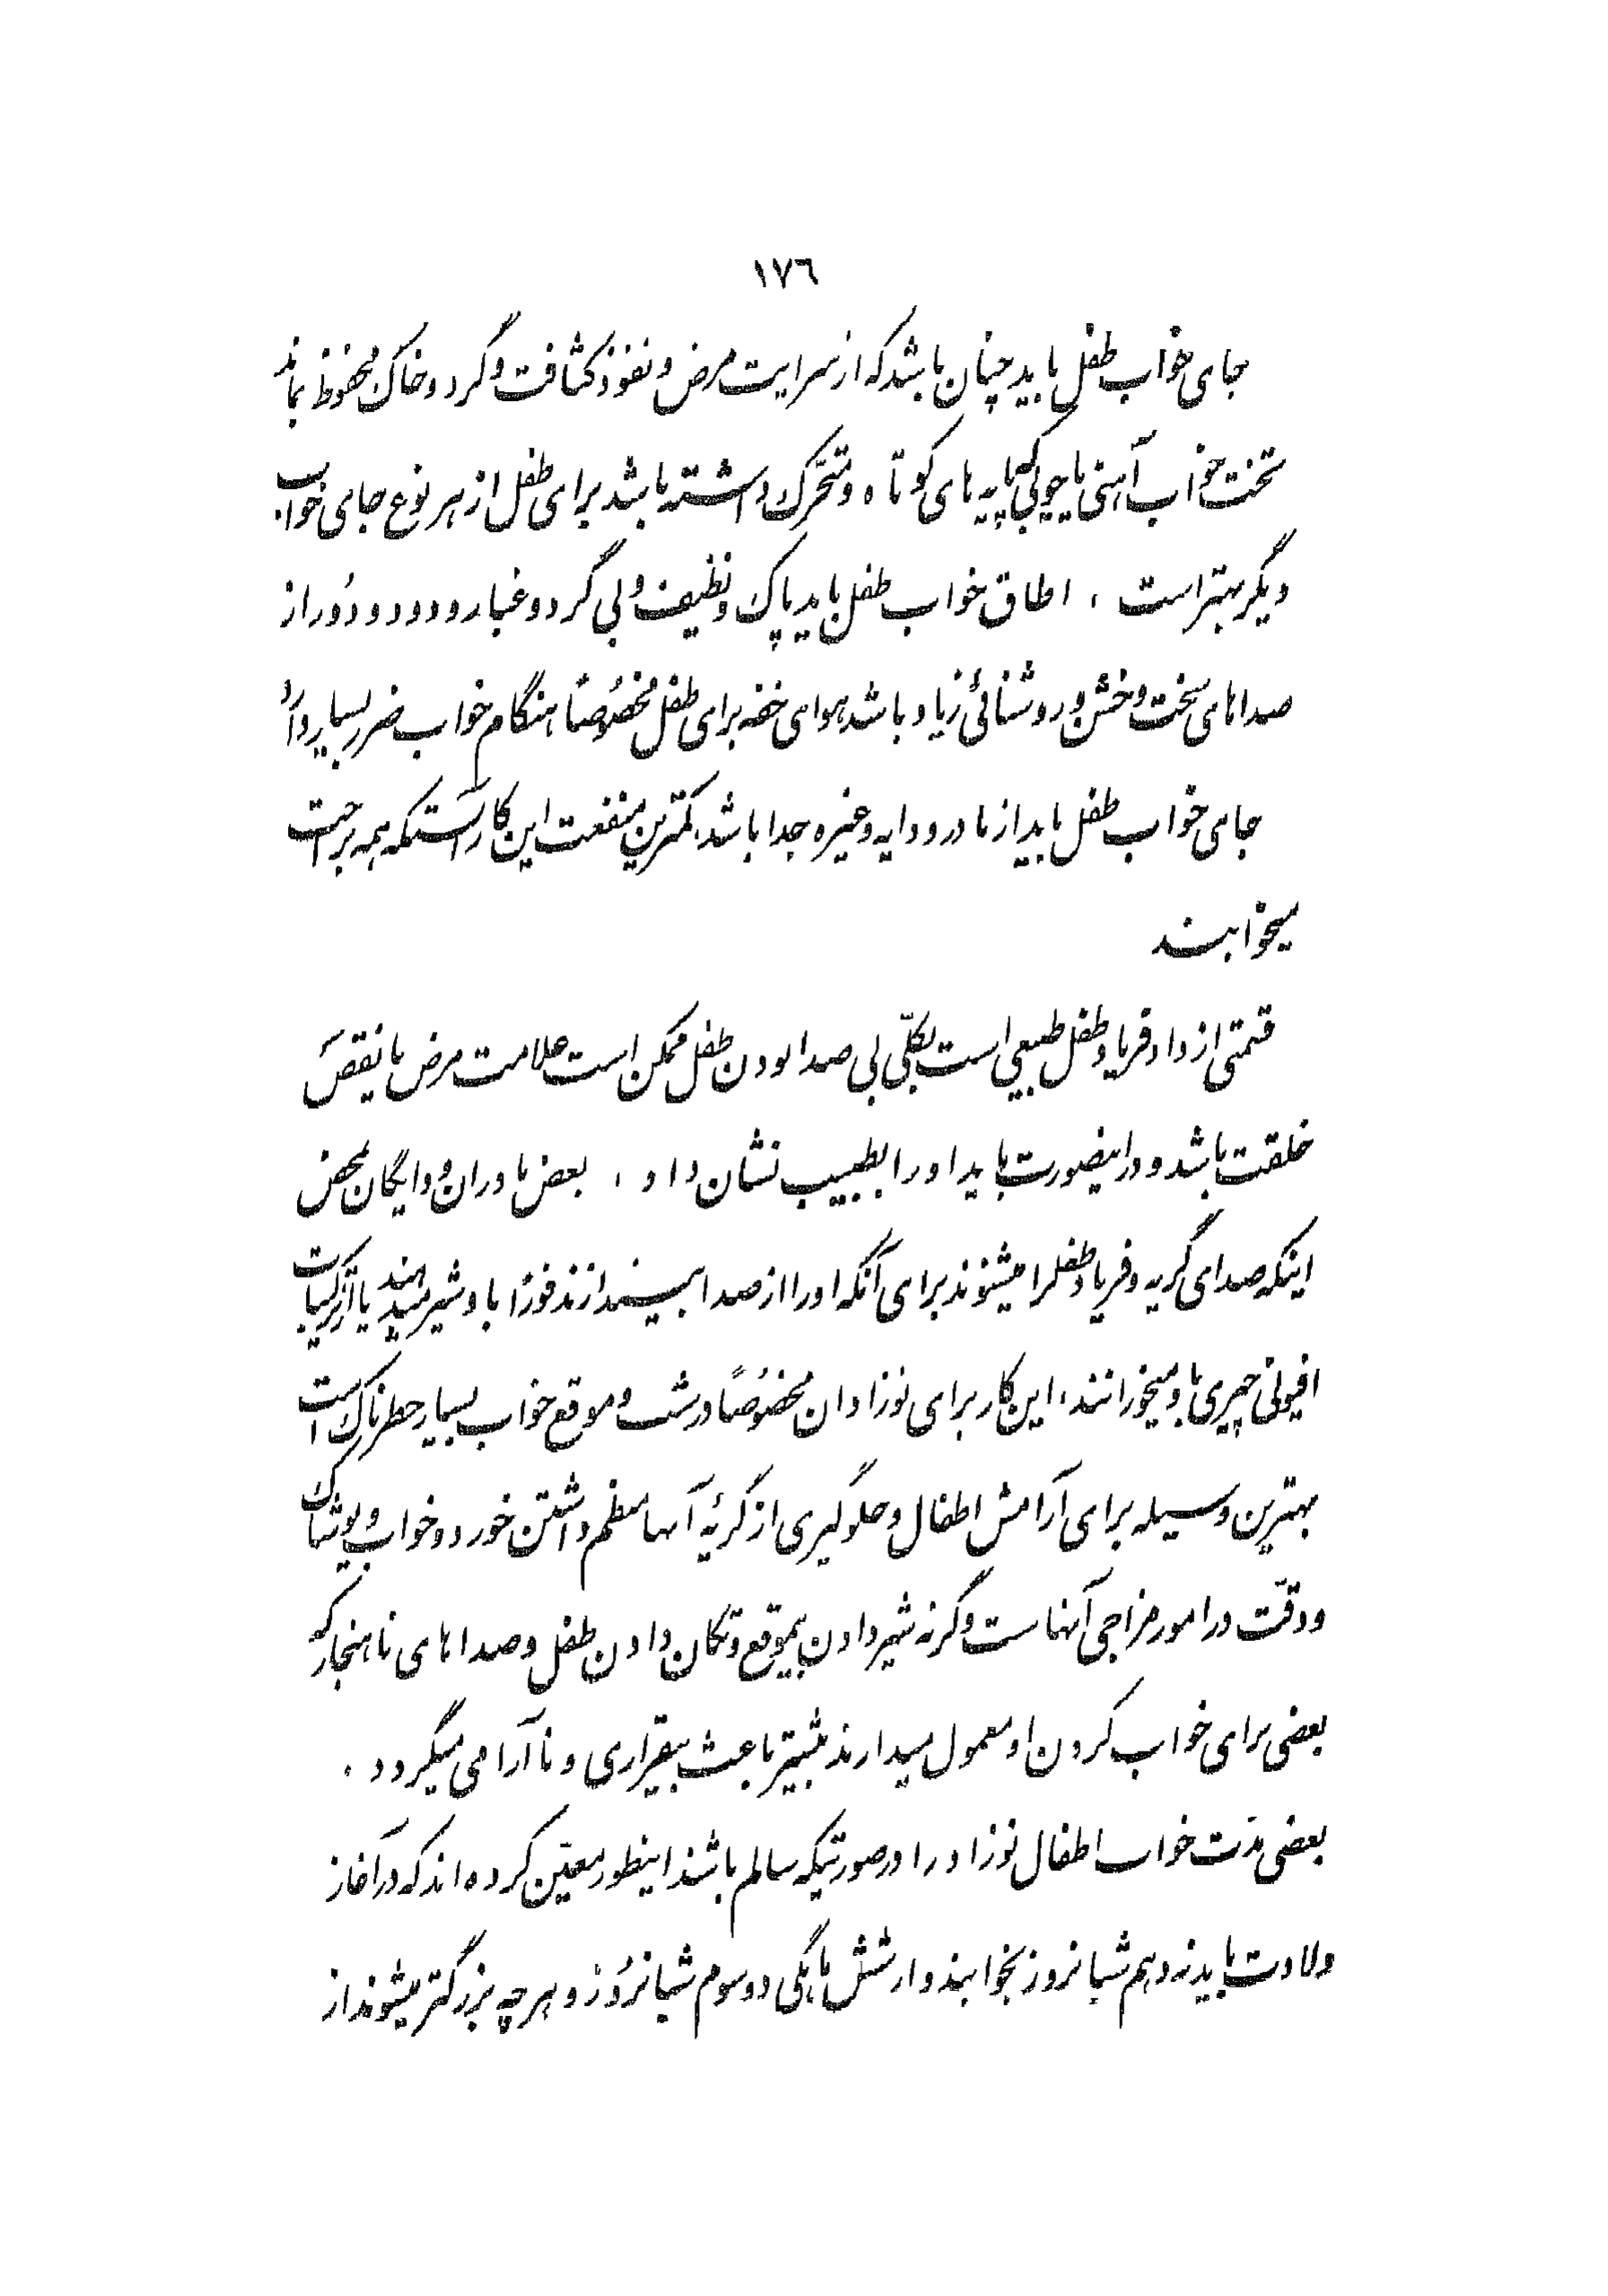 ١٧٦
جای خواب طفل باید چنان باشد که از سرایت مرض و نفوذ کثافت و گرد و خاک محفوظ بماند
تخت خواب آهنی یا چوبی که پایه های کوتاه و متحرّک داشته باشد برای طفل از هر نوع جای خواب
دیگر بهتر است ، اطاق خواب طفل باید پاک و نظیف و بی گرد و غبار و دود و دُور از
صداهای سخت و خشن و روشنائی زیاد باشد هوای خفه برای طفل مخصُوصاً هنگام خواب ضرر بسیار دارد
جای خواب طفل باید از مادر و دایه و غیره جدا باشد، کمترین منفعت این کار آنستکه همه براحت
میخوابند
قسمتی از داد و فریاد طفل طبیعی است بکلّی بی صدا بودن طفل ممکن است علامت مرض یا نقص
خلقت باشد و در اینصورت باید او را بطبیب نشان داد ، بعض مادران و دایگان محض
اینکه صدای گریه و فریاد طفلرا میشنوند برای آنکه او را از صدا بیندازند فوراً باو شیر میدهند یا از ترکیبات
افیونی چیزی باو میخورانند، این کار برای نوزادان مخصُوصاً در شب و موقع خواب بسیار خطرناک است
بهترین وسیله برای آرامش اطفال و جلوگیری از گریهٔ آنها منظم داشتن خورد و خواب و پوشاک
و دقّت در امور مزاجی آنهاست وگرنه شیر دادن بیموقع و تکان دادن طفل و صداهای ناهنجار که
بعضی برای خواب کردن او معمول میدارند بیشتر باعث بیقراری و ناآرامی میگردد .
بعضی مدّت خواب اطفال نوزاد را در صورتیکه سالم باشند اینطور معیّن کرده اند که در آغاز
ولادت باید نه دهم شبانروز بخوابند و از شش ماهگی دو سوم شبانرُوز و هر چه بزرگتر میشوند از